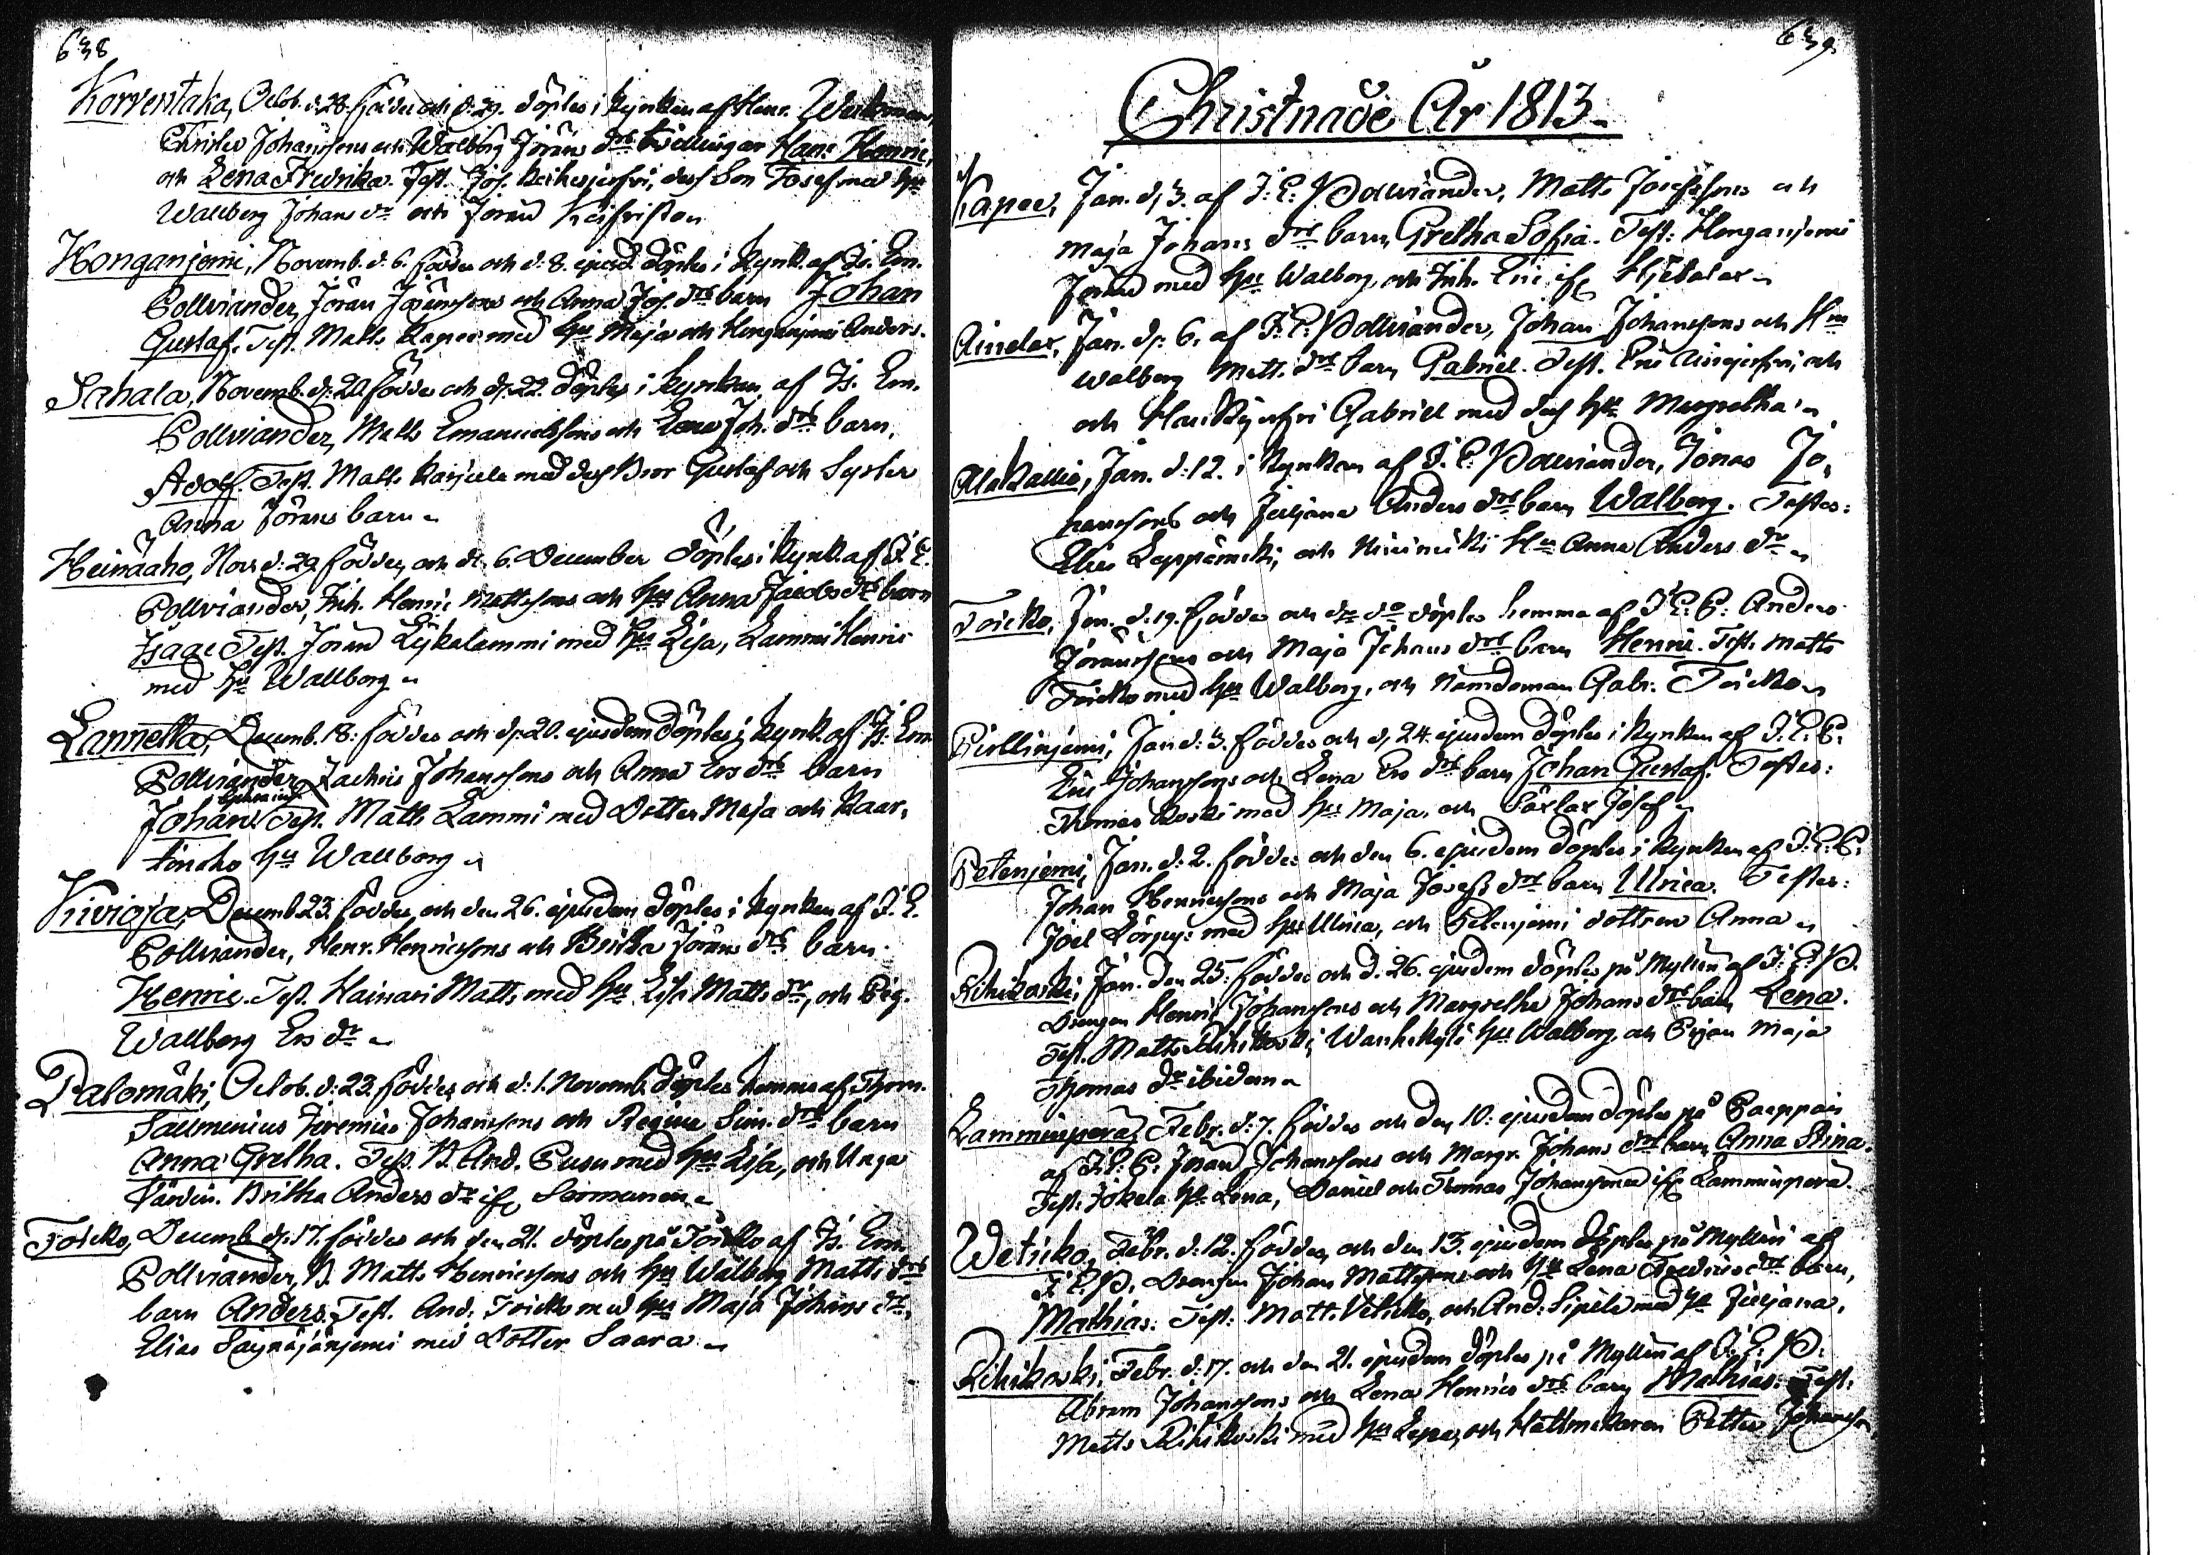 638
Korventaka, Octob. d. 28. föddes och d. 29. döptes i kyrkan af Henr. Wekman,
Christer Johanssons och Walborg Jörans drs twillingar Hans Henric,
och Lena Fredrika. Test. Jos. dess Son Josef med hu
Wallborg Johans dr och Jöran
Honganjemi, Novemb. d. 6. föddes och d. 8. ejusd döptes i kyrk. af Is. Em.
Pollviander, Jöran Jöranssons och Anna Jos. drs barn Johan
Gustaf. Test. Matts Kapee med hu Maja och Honganjemi Anders.
Sahala, Novemb. d. 20 föddes och d. 22. döptes i kyrkan af Is. Em.
Pollviander, Matts Emanuelssons och Lena Joh. drs barn,
Adolf. Test. Matts Karjula med dess Bror Gustaf och Syster
Anna Jörans barn
Heinäaho, Nov. d: 29 föddes, och d. 6. December döptes i kyrk. af I. E.
Pollviander, Inh. Henric Mattssons och hu Anna Jacobs drs barn
Isaac Test. Jöran Lykalammi med hu Lisa, Lammi Henric
med hu Wallborg
Lannetta, Decemb. 18: föddes och d. 20. ejusdem döptes i kyrk. af Is: Em
Pollviander Zachris Johanssons och Anna Ers drs barn
Johan Ephraim. Test. Matts Lammi med Dotter Maja och Kaar-
tinaho hu Wallborg
Kivioja, Decemb. 23. föddes, och den 26. ejusdem döptes i kyrkan af I. E.
Pollviander, Henr. Henricssons och Britha Jörans drs barn
Henric. Test. Hainari Matts med hu Lisa Matts dr, och Pig.
Wallborg Ers dr
Palomäki, Octob. d: 23. föddes och d: 1. Novemb. döptes hemma af Thom.
Sallmenius Jeremias Johanssons och Regina Sim. drs barn
Anna Gretha. Test. B. And. Pusu med hu Lisa, och Unga
Värdin. Britha Anders dr ifr.
Toicko, Decemb. d. 17. föddes och den 21. döptes på Toicko af Is. Em.
Pollviander, B. Matts Henricssons och hu Walborg Matts drs
barn Anders. Test. And. Toicko med hu Maja Johans dr,
Elias Säynäjänjemi med Dotter Saara
639.
Christnade År 1813
Kapee, Jan. d. 3. af I: E: Pollviander, Matts Josefssons och
Maja Johans drs barn Gretha Sofia. Test: Honganjemi
Jöran med hu Walborg, och Inh. Eric ifr
Aindar, Jan. d. 6. af I. E: Pollviander, Johan Johanssons och Hu
Walborg Matt. drs barn Gabriel. Test. Eric och
och Gabriel med dess hu Margretha
Alakallio, Jan. d: 12. i kyrkan af I. E: Pollviander, Jonas Jo-
hanssons och Juljana Anders drs barn Walborg. Testes:
Elias Leppämäki, och Niinimäki Hu Anna Anders dr
Toicko, Jan. d. 19. föddes och dn do döptes hemma af I: E: P: Anders
Jöranssons och Maja Johans drs barn Henric. Test. Matts
Toicko med hu Walborg, och Nämdeman Gabr. Toicko
Pirttinjemi, Jan. d: 3. föddes och d. 24. ejusdem döptes i kyrkan af I. E. P.
Eric Johanssons och Lena Ers drs barn Johan Gustaf. Testes:
Thomas Koski med hu Maja, och Josef
Petenjemi, Jan. d: 2. föddes och den 6. ejusdem döptes i kyrkan af I. E. P.
Johan Henricssons och Maja Josefs drs barn Ulrica. Testes:
Joel med hu Ulrica, och Petenjemi dottren Anna
Rihikoski, Jan. den 25. föddes och d. 26. ejusdem döptes på Myllari af I: E: P.
Drengen Henric Johanssons och Margretha Johans drs barn Lena.
Test. Matts Rihikoski, hu Walborg, och Pigan Maja
Thomas dr ibidem
Lamminperä, Febr. d: 7. föddes och den 10: ejusdem döptes på
af I. E. P. Jöran Johanssons och Margr. Johans drs barn Anna Stina.
Test. Jokela hu Lena, Daniel och Thomas Johansson ifr Lamminperä.
Weticko, Febr. d: 12. föddes, och den 13. ejusdem döptes på Myllari af
I. E. P. Drengen Johan Mattssons och hu Lena Fredrics drs barn,
Mathias. Test: Matt. Veticko, och And. Sipilä med hu Juljana.
Rihikoski, Febr. d. 17. och den 21. ejusdem döptes på Myllari af I. E. P.
Abram Johanssons och Lena Henrics drs barn Mathias. Test.
Matts Rihikoski med hu och Hattmakaren Petter Johansson